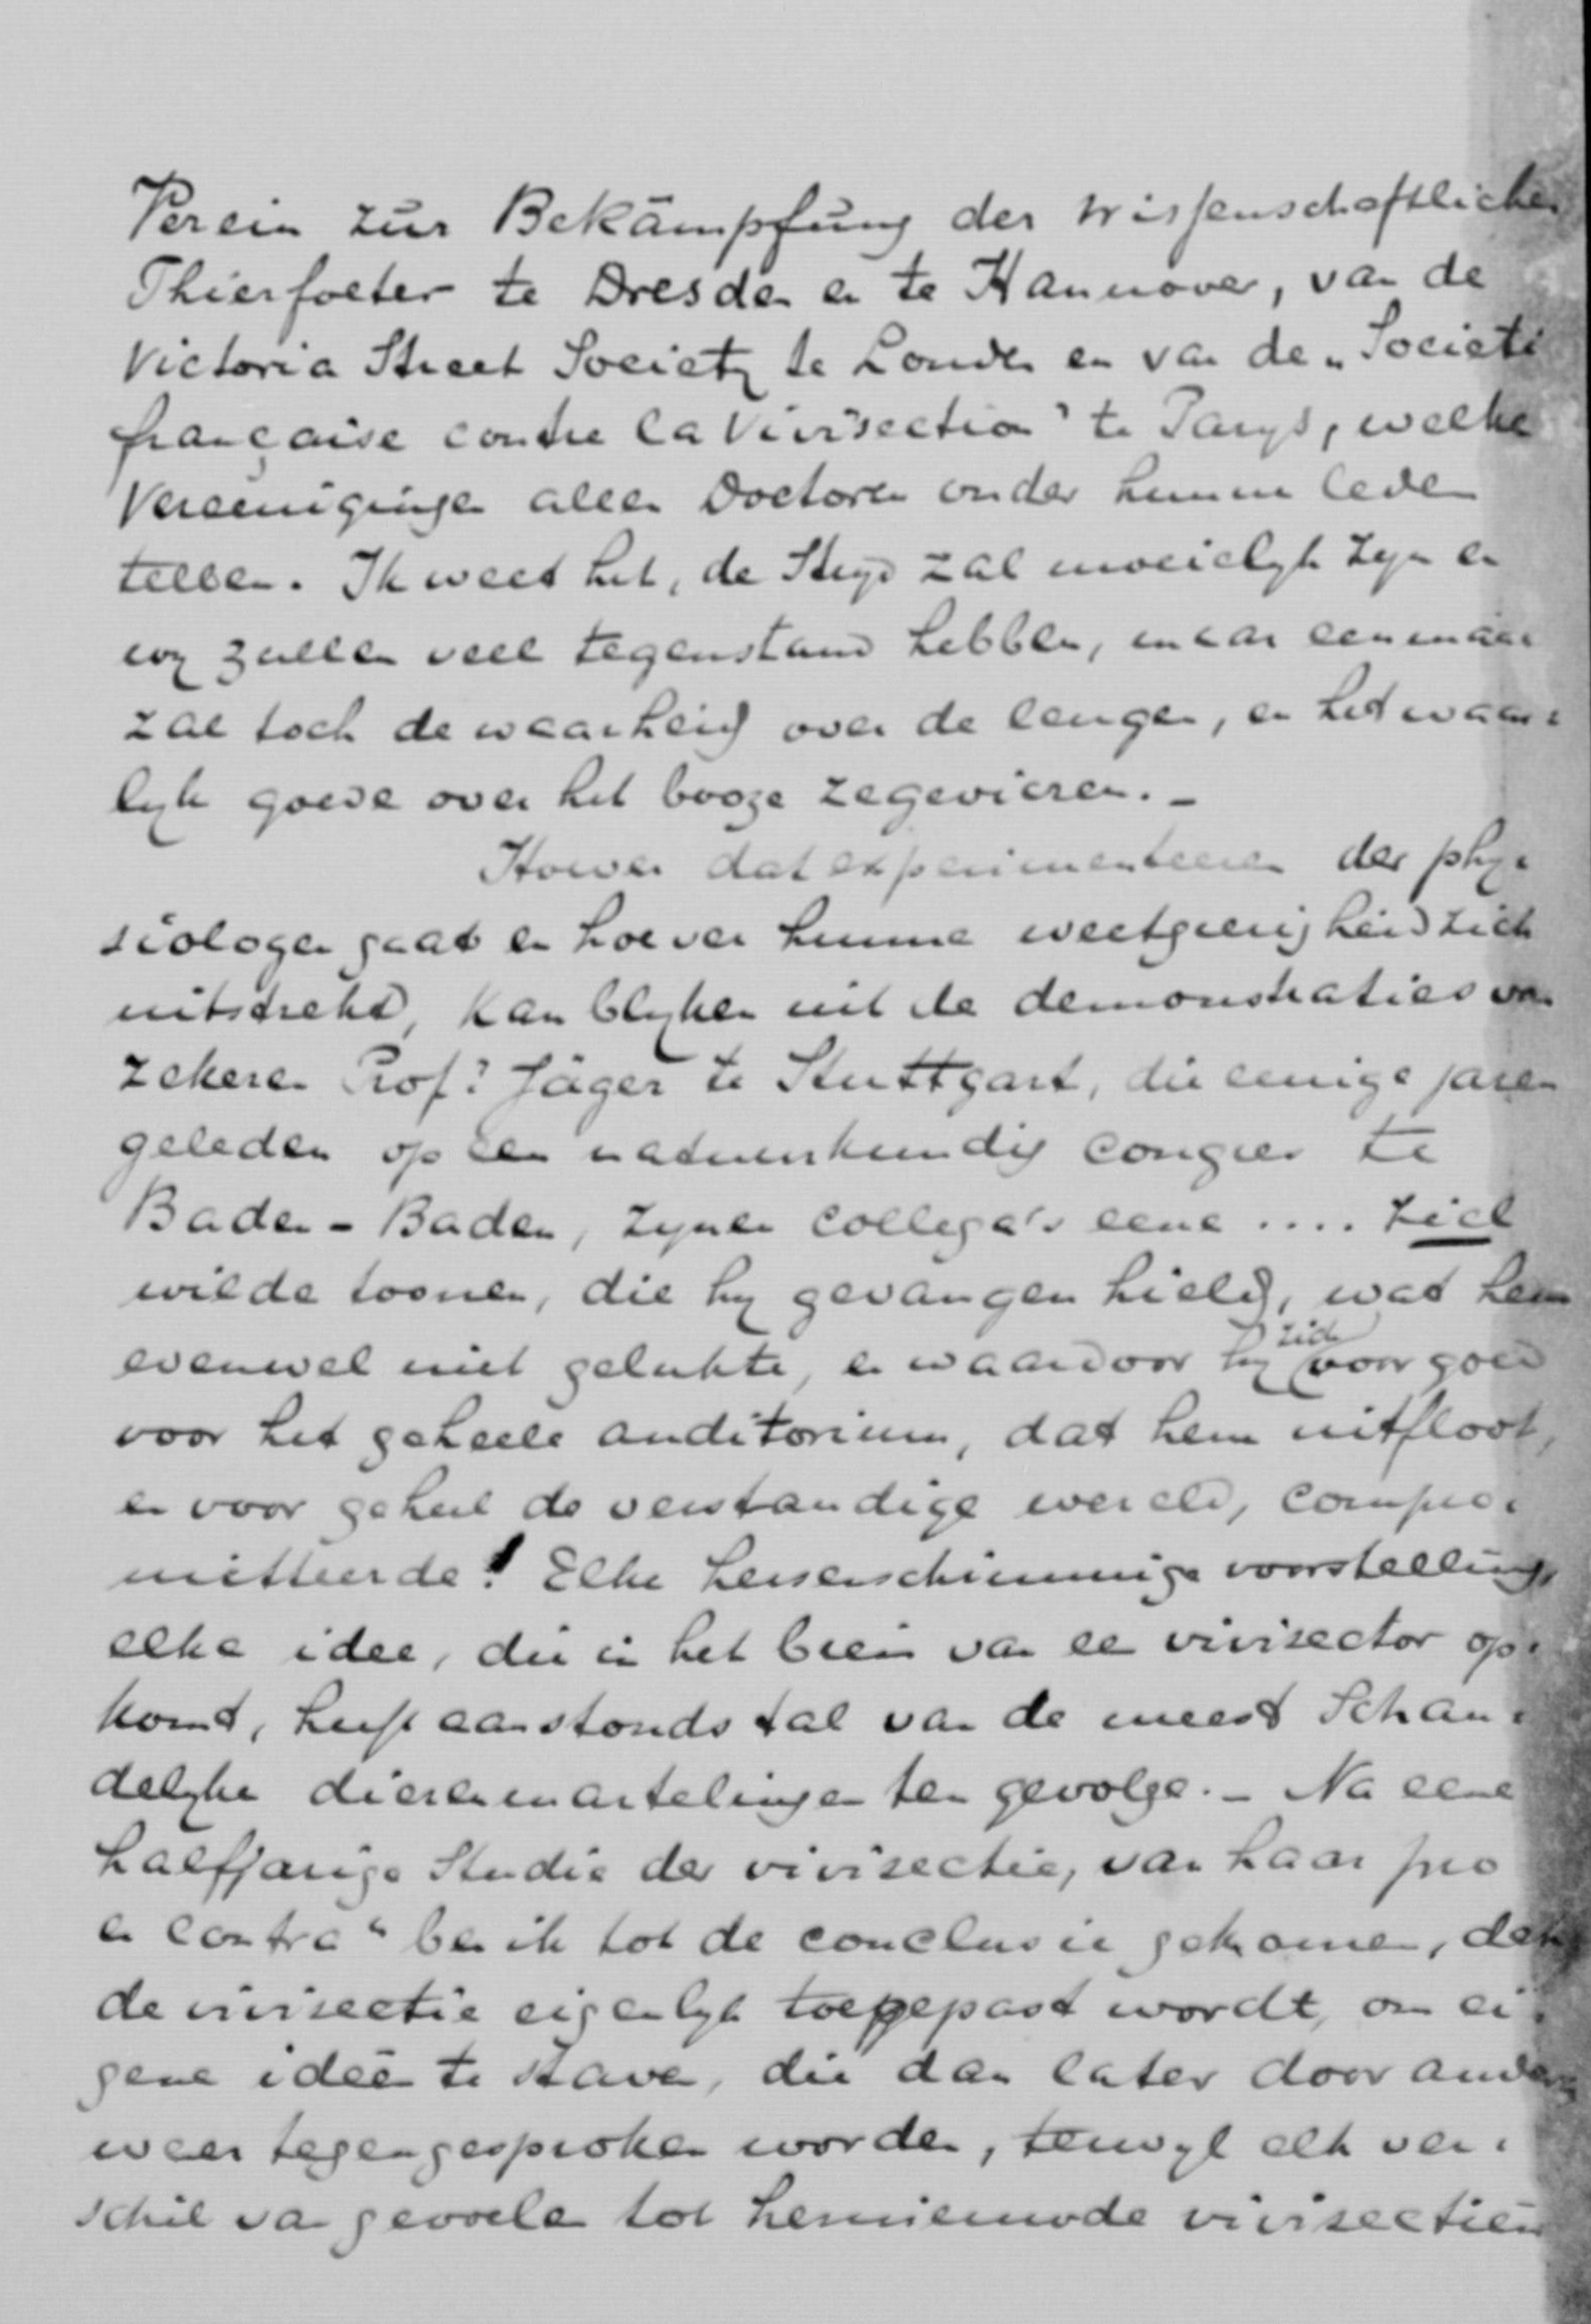 Verein zur Bekämpfung der wissenschaftlichen
Thierfolter te Dresden en te Hannover, van de
Victoria Street Society te Londen en van de „Societé
française contre la Vivisection" te Parys, welke
Vereenigingen allen Doctoren onder hunne leden
tellen. Ik weet het, de Stryd zal moeielyk zyn en
wy zullen veel tegenstand hebben, maar eenmaal
zal toch de waarheid over de leugen, en het waar=
lyk goede over het booze zegevieren. _
Hoever dat experimenteeren der phy=
siologen gaat en hoever hunne weetgierigheid zich
uitstrekt, kan blyken uit de demonstraties van
zekeren Prof: Jäger te Stuttgart, die eenige jaren
geleden op een natuurkundig congres te
Baden - Baden, zynen collega's eene .... ziel
wilde toonen, die hy gevangen hield, wat hem
evenwel niet gelukte, en waardoor hy zich voor goed
voor het geheele auditorium, dat hem uitfloot,
en voor geheel de verstandige wereld, compro=
mitteerde! Elke hersenschimmige voorstelling,
elke idee, die in het brein van een vivisector op=
komt, heeft aanstonds tal van de meest Schan=
delyke dierenmartelingen ten gevolge. _ Na eene
halfjarige Studie der vivisectie, van haar pro
en contra" ben ik tot de conclusie gekomen, dat
de vivisectie eigenlyk toegepast wordt, om ei=
gene ideën te staven, die dan later door anderen
weer tegengesproken worden, terwyl elk ver=
schil van gevoelen tot hernieuwde vivisectiën